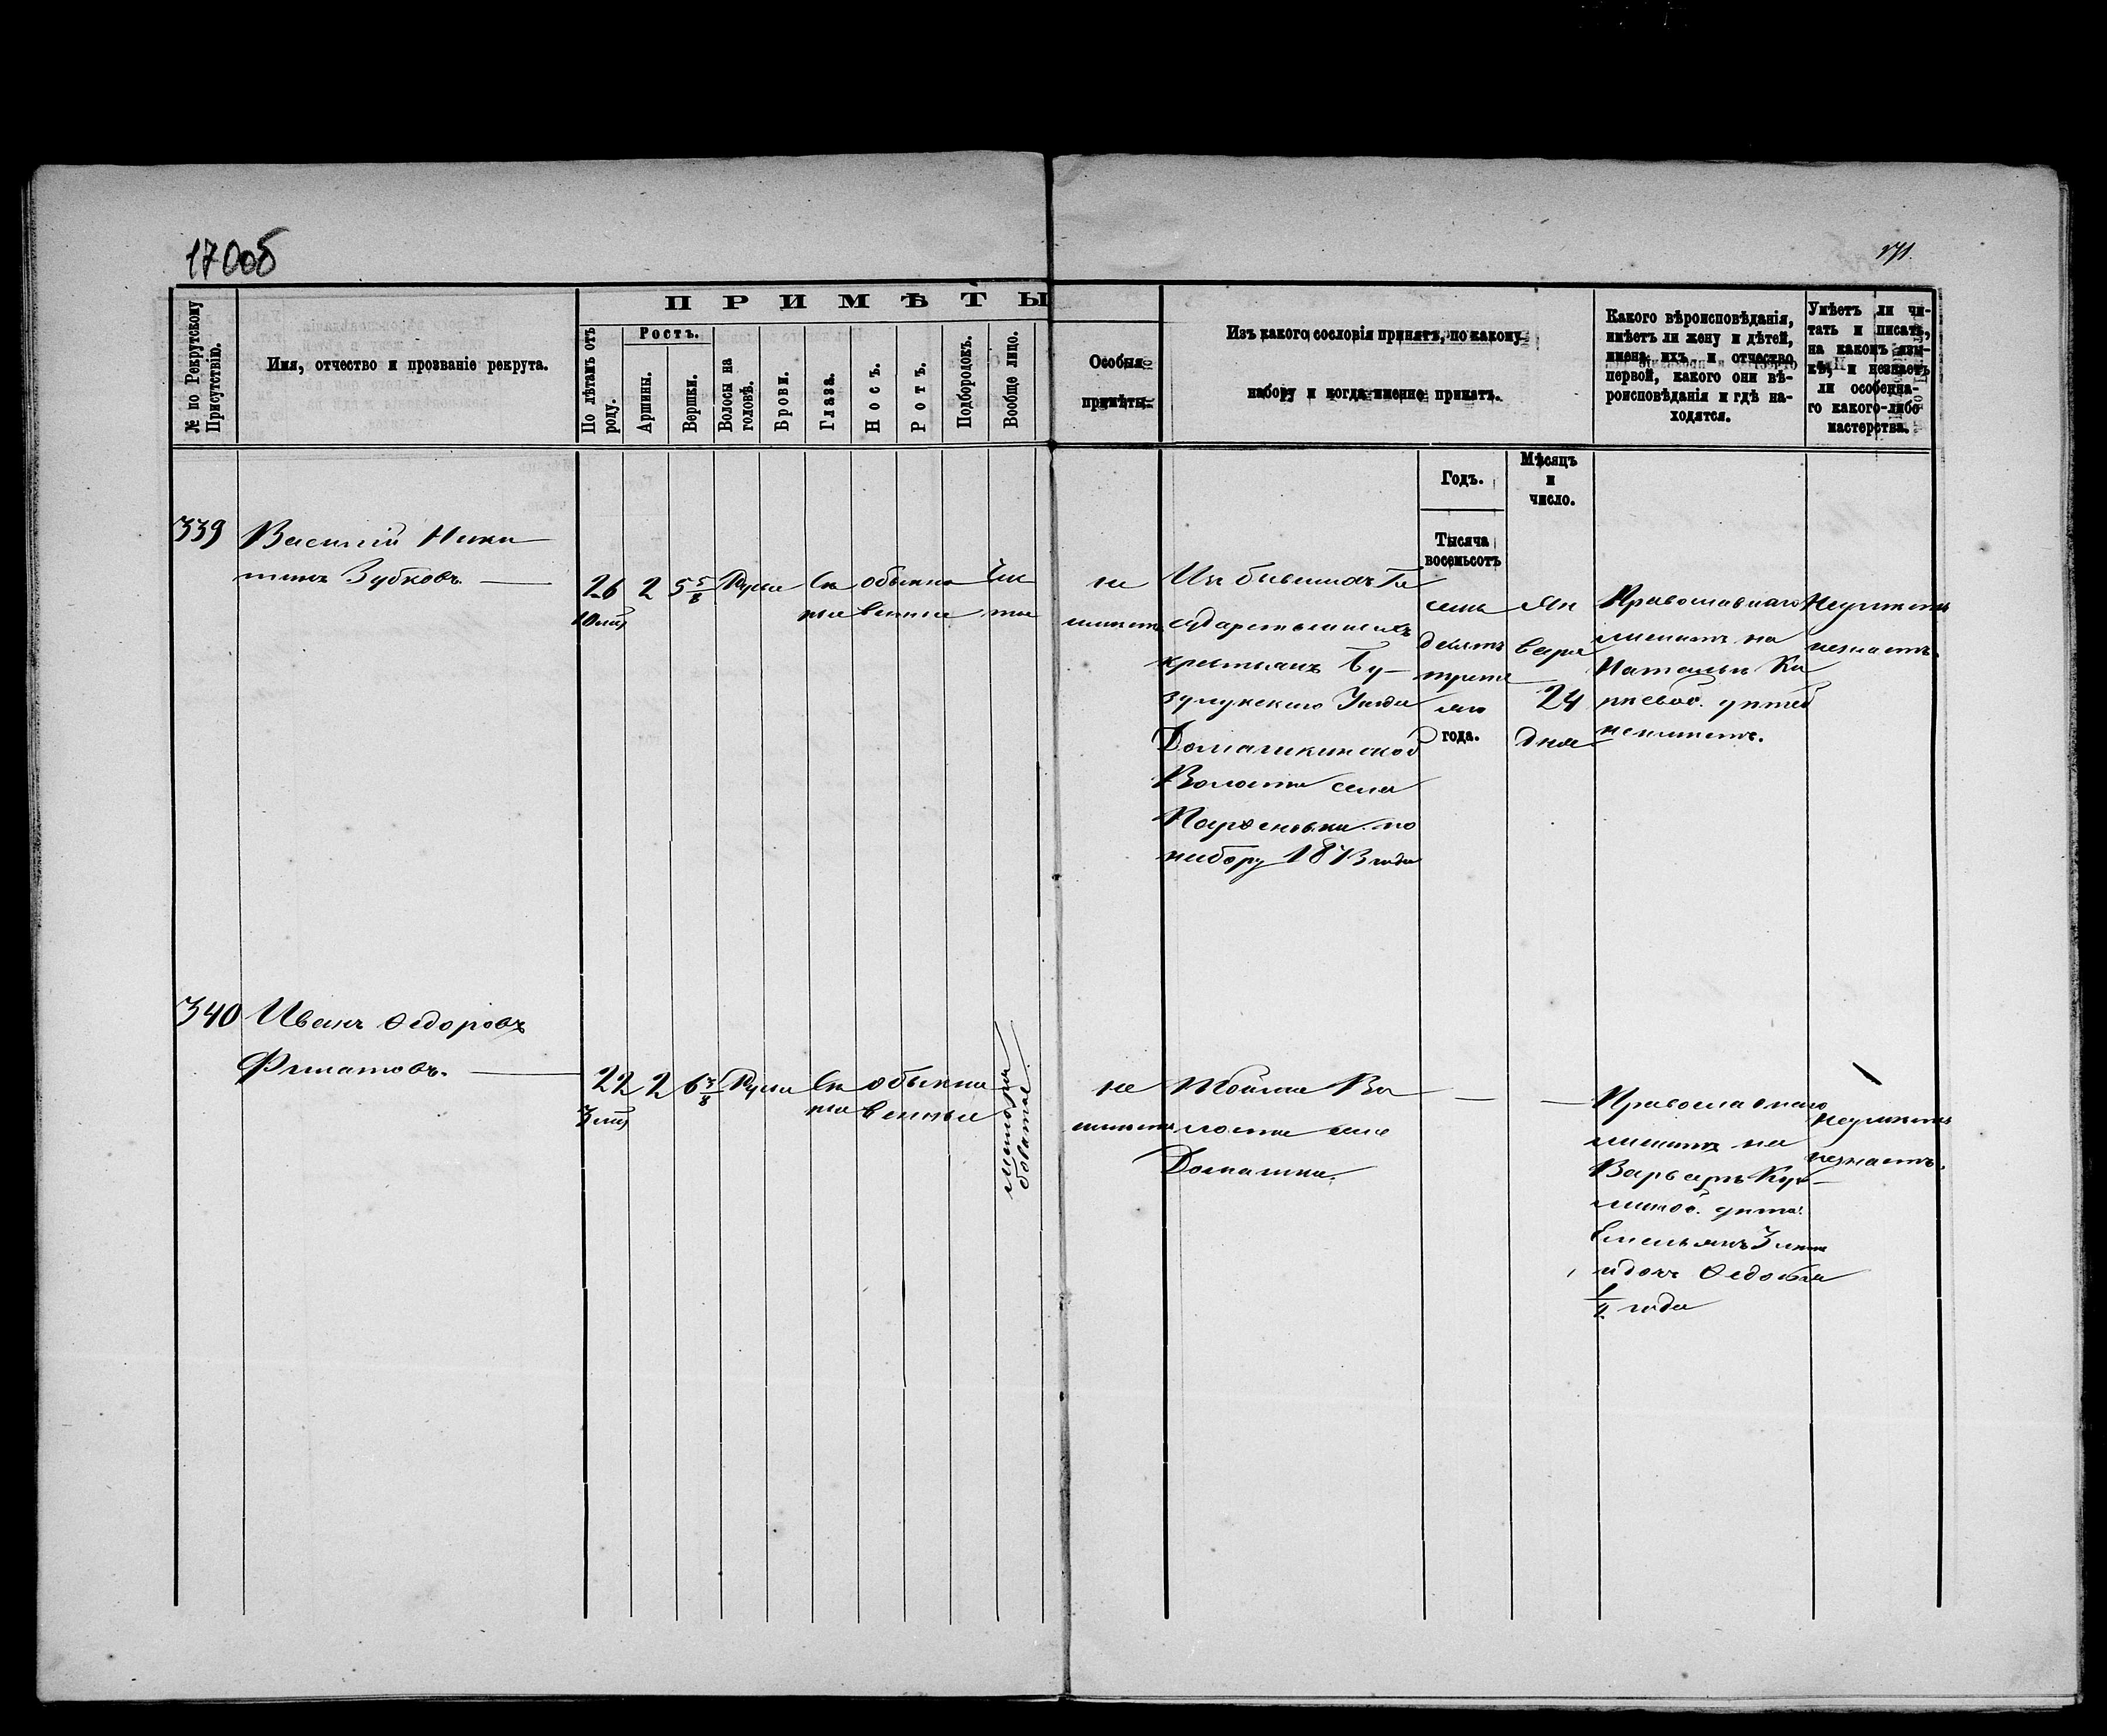 170об
171.
№ по Рекрутскому Присутствію.
Имя, отчество и прозваніе рекрута.
ПРИМѢТЫ
По лѣтамъ отъ роду.
Ростъ.
Аршины.
Вершки.
Волосы на головѣ.
Брови.
Глаза.
Носъ.
Ротъ.
Подбородокъ.
Вообще лицо.
Особыя
примѣты.
Изъ какого сословія принятъ, по какому
набору и когда именно принятъ.
Какого вѣроисповѣданія,
имѣетъ ли жену и дѣтей,
имена ихъ и отчество
первой, какого они вѣ-
роисповѣданія и гдѣ на-
ходятся.
Умѣетъ ли чи-
тать и писать,
на какомъ язы-
кѣ, и незнаетъ
ли особенна-
го какого-либо
мастерства.
Годъ.
Мѣсяцъ
и
число.
Тысяча
восемьсотъ
339
Василій Ники
тинъ Зубковъ.
26
10 мѣс
2
5 5/8
Русые
Сѣ
рые
обыкно
венные
Чис
тое
не
имѣетъ
Изъ бывшихъ Го
сударственныхъ
крестьянъ Бу-
зулукскаго Уѣзда
Домашкинской
Волости села
Парфеновки по
набору 1873 года
семь
десятъ
треть
яго
года.
Ян
варя
24
дня
Православнаго
женатъ на
Натальѣ Ки
рѣевой. дѣтей
неимѣетъ.
Неумѣетъ
незнаетъ.
340
Иванъ Ѳедоровъ
Филатовъ.
22
3 мѣс
2
6 3/8
Русые
Сѣ
рые
обыкно
венные
не
имѣетъ
Тойже Во
лости села
Домашки.
Православнаго
женатъ на
Варварѣ Кузь-
миной. дѣти:
Емельянъ 3 лѣтъ
и дочь Ѳедосья
1/2 года
Неумѣетъ
незнаетъ.